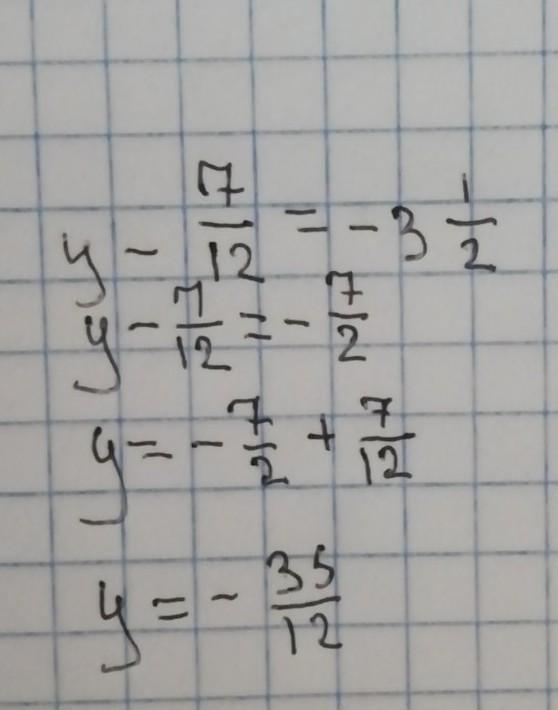 y - 7/12 = -3 1/2
y - 7/12 = - 7/2
y = - 7/2 + 7/12
y = - 35/12